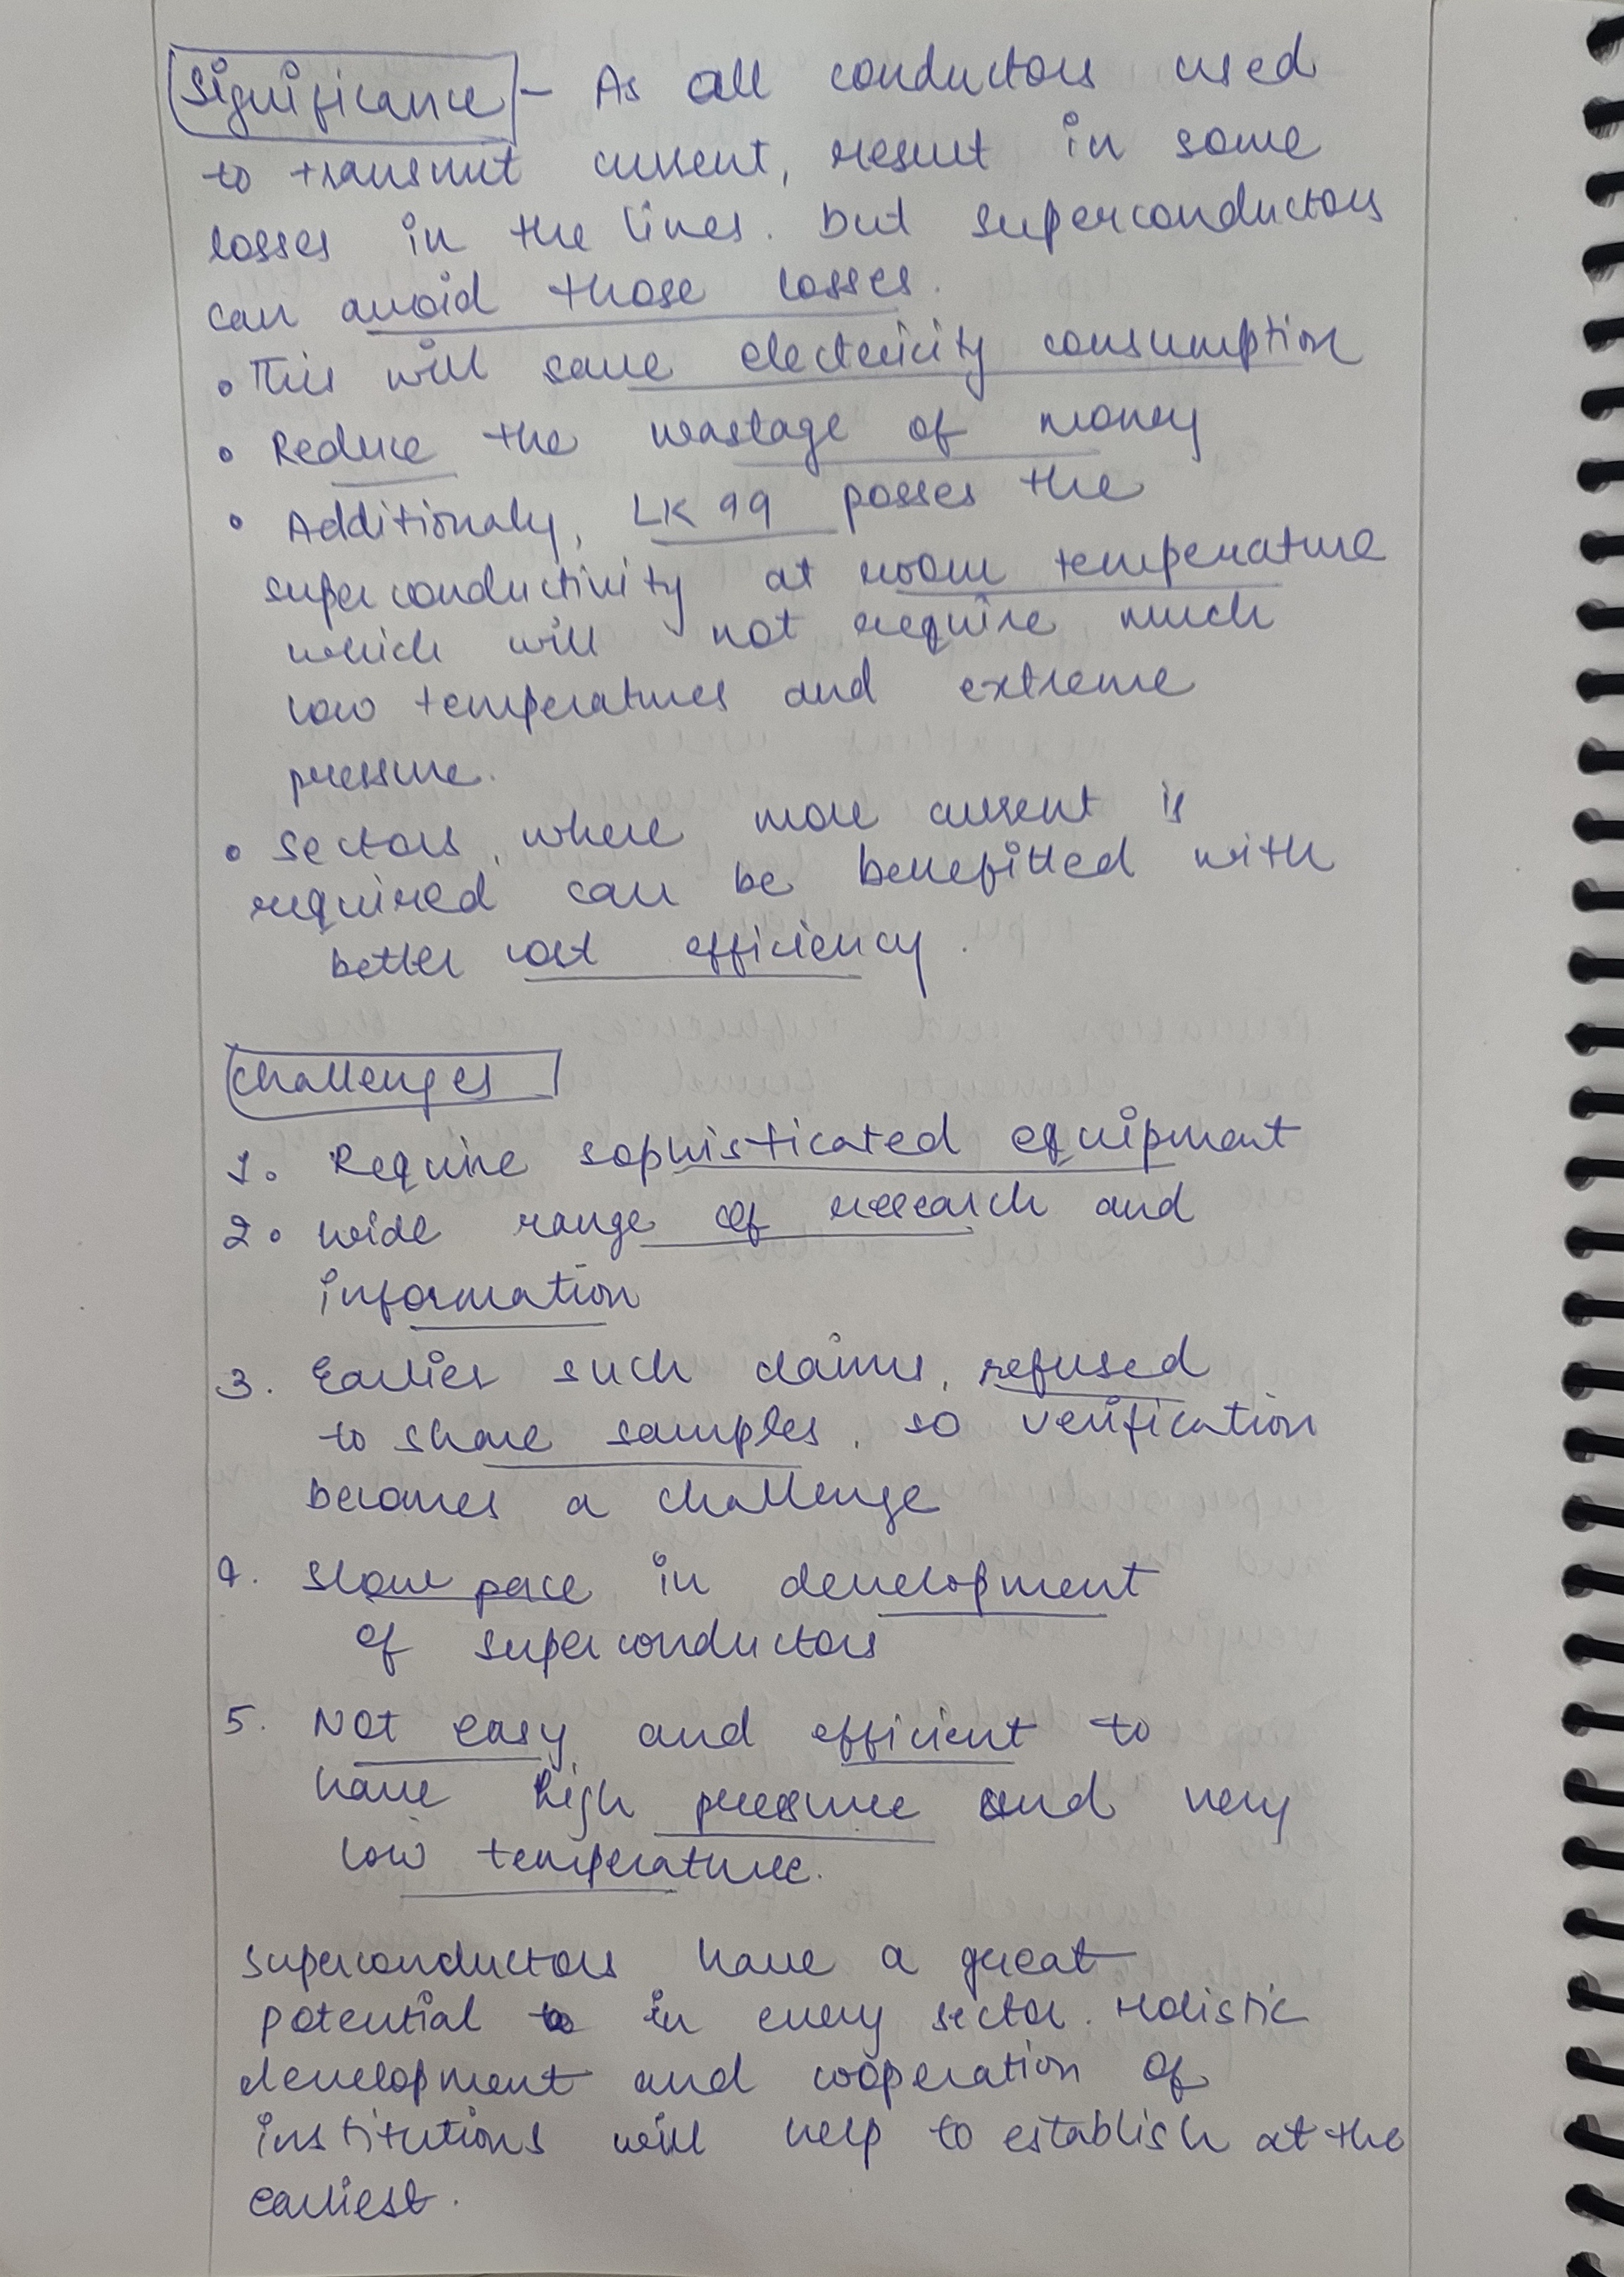 Significance - As all conductors used
to transmit current, result in some
losses in the lines. But superconductors
can avoid those losses.
• This will save electricity consumption
• Reduce the wastage of money
• Additionaly, LK 99 posses the
superconductivity at room temperature
which will not require much
low temperatures and extreme
pressure.
• Sectors, where more current is
required can be benefitted with
better cost efficiency.
Challenges
1. Require sophisticated equipment
2. Wide range of research and
information
3. Earlier such claims, refused
to share samples, so verification
becomes a challenge
4. Slow pace in development
of superconductors
5. Not easy and efficient to
have high pressure and very
low temperature.
Superconductors have a great
potential in every sector. Holistic
development and cooperation of
institutions will help to establish at the
earliest.